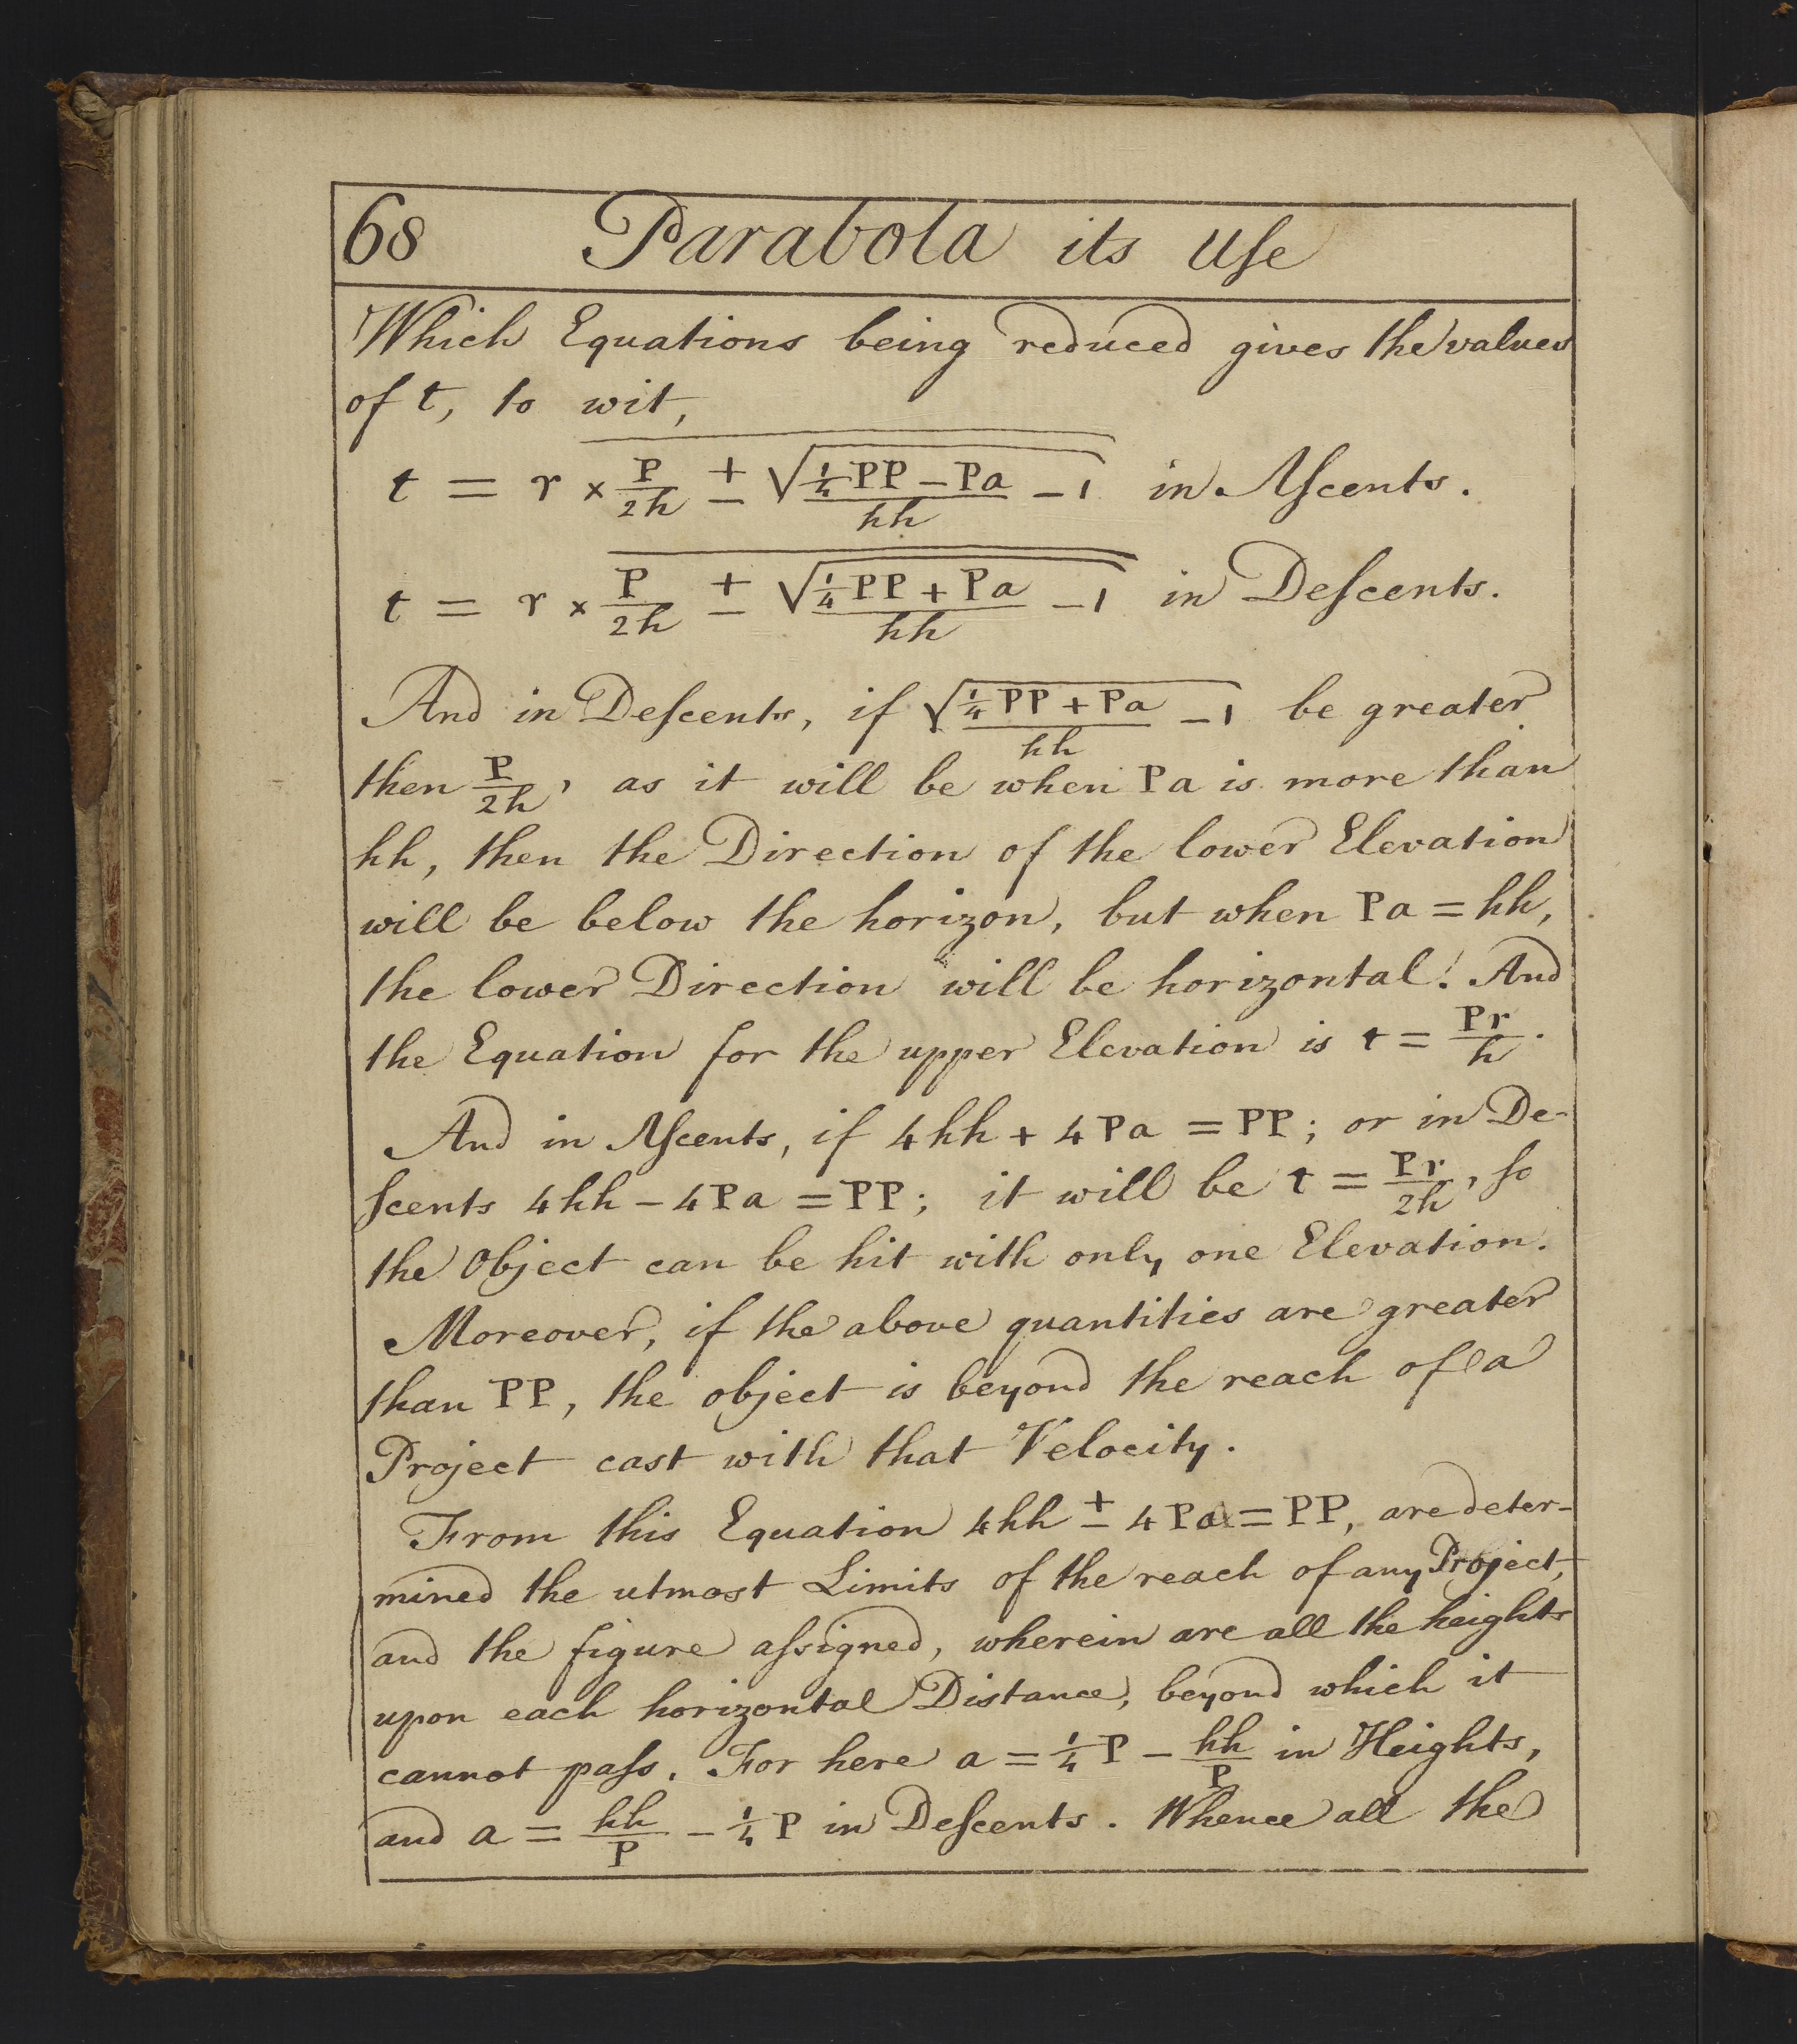 68 Parabola its Uſe
Which Equations being reduced gives the values
of t, to wit,
t = r × P/2h ± √(¼PP − Pa)/hh − 1 in Aſcents.
t = r × P/2h ± √(¼PP + Pa)/hh − 1 in Deſcents.
And in Deſcents, if √(¼PP + Pa)/hh − 1 be greater
then P/2h, as it will be when Pa is more than
hh, then the Direction of the lower Elevation
will be below the horizon, but when Pa = hh,
the lower Direction will be horizontal. And
the Equation for the upper Elevation is t = Pr/h.
And in Aſcents, if 4hh + 4Pa = PP; or in De-
ſcents 4hh − 4Pa = PP; it will be t = Pr/2h, ſo
the Object can be hit with only one Elevation.
Moreover, if the above quantities are greater
than PP, the object is beyond the reach of a
Project cast with that Velocity.
From this Equation 4hh ± 4Pa = PP, are deter-
mined the utmost Limits of the reach of any Project,
and the figure aſsigned, wherein are all the heights
upon each horizontal Distance, beyond which it
cannot paſs. For here a = ¼P − hh/P in Heights,
and a = hh/P − ¼P in Deſcents. Whence all the